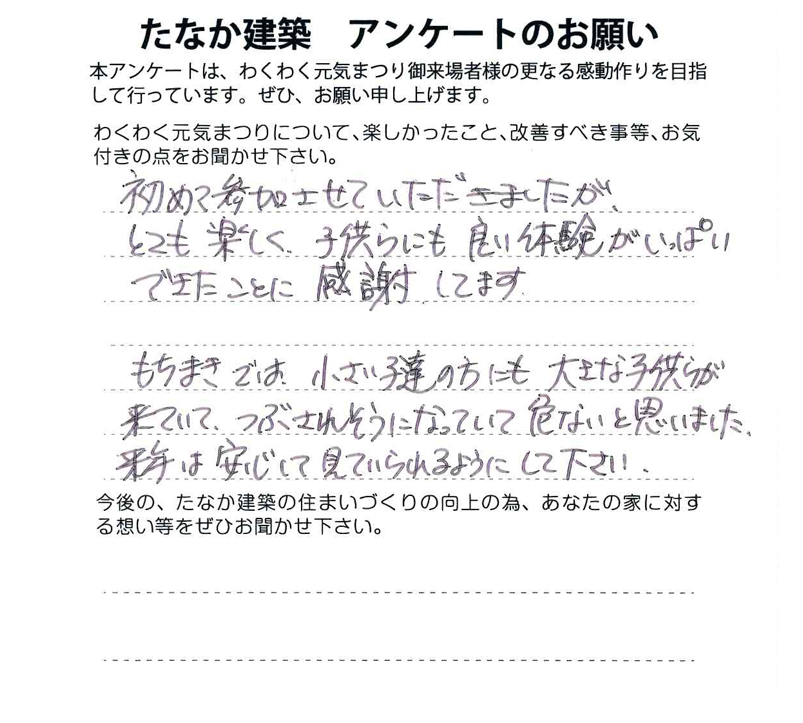 たなか建築　アンケートのお願い
本アンケートは、わくわく元気まつり御来場者様の更なる感動作りを目指
して行っています。ぜひ、お願い申し上げます。
わくわく元気まつりについて、楽しかったこと、改善すべき事等、お気
付きの点をお聞かせ下さい。
初めて参加させていただきましたが、
とても楽しく、子供らにも良い体験がいっぱい
できたことに感謝してます
もちまきでは、小さい子達の方にも大きな子供らが
来ていて、つぶされそうになっていて危ないと思いました。
来年は安心して見ていられるようにして下さい。
今後の、たなか建築の住まいづくりの向上の為、あなたの家に対す
る想い等をぜひお聞かせ下さい。